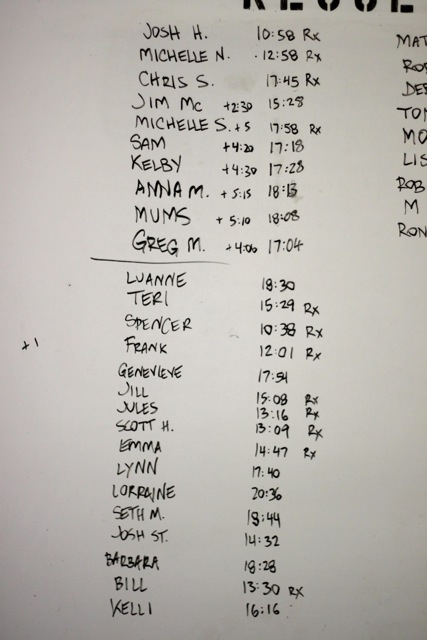 JOSH H. 10:58 Rx
MICHELLE N. 12:58 Rx
CHRIS S. 17:45 Rx
JIM MC +2:30 15:28
MICHELLE S. +5 17:58 Rx
SAM +4:20 17:18
KELBY +4:30 17:28
ANNA M. +5:15 18:13
MUMS +5:10 18:08
GREG M. +4:06 17:04
LUANNE 18:30
TERI 15:29 Rx
SPENCER 10:38 Rx
+1 FRANK 12:01 Rx
GENEVIEVE 17:54
JILL 15:08 Rx
JULES 13:16 Rx
SCOTT H. 13:09 Rx
EMMA 14:47 Rx
LYNN 17:40
LORRAINE 20:36
SETH M. 18:44
JOSH ST. 14:32
BARBARA 18:28
BILL 13:30 Rx
KELLI 16:16
MAT
DE
TO
MO
LIS
ROB
M
RON